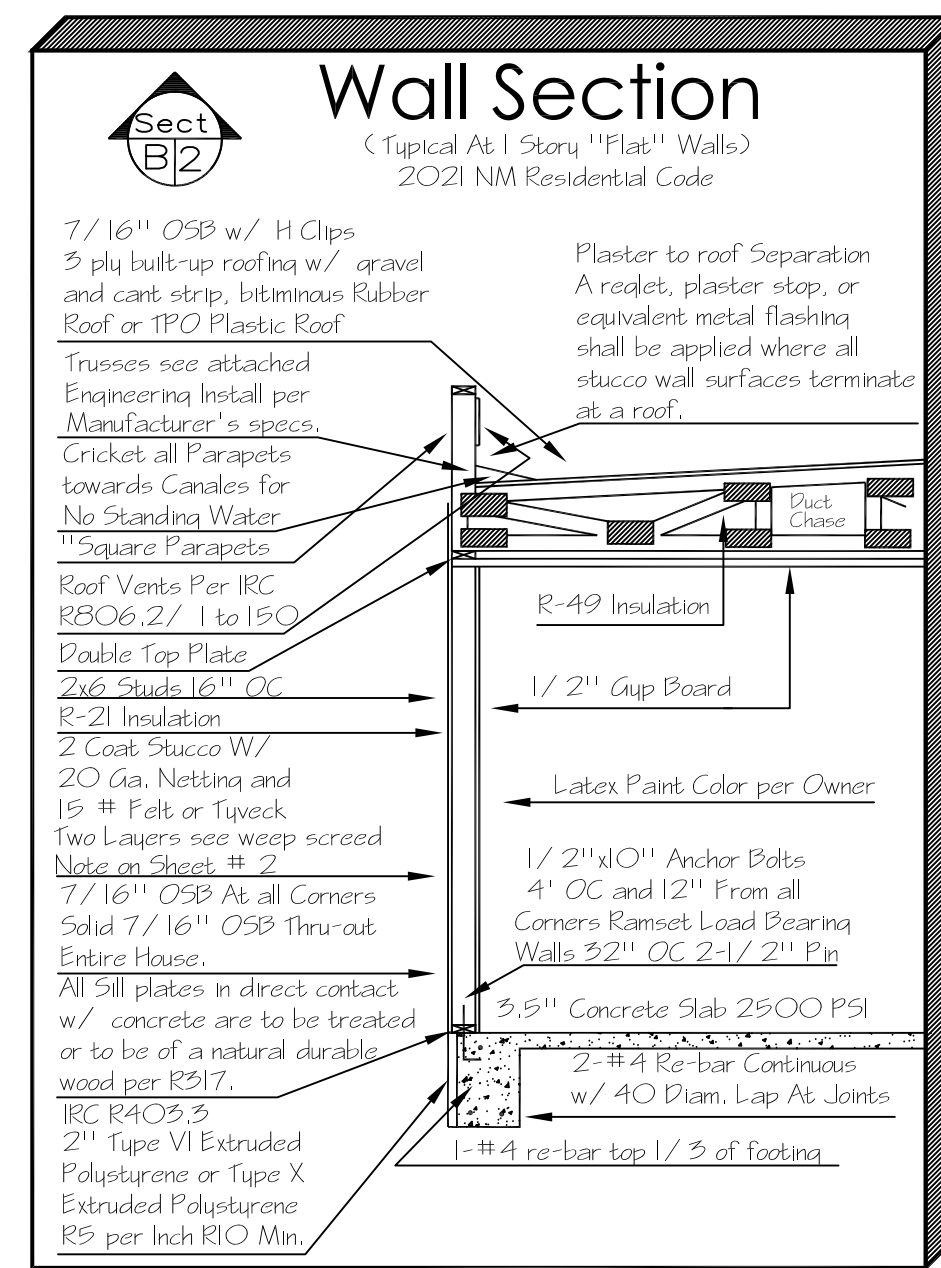 Wall Section
Sect
B 2
(Typical At 1 Story "Flat" Walls)
2021 NM Residential Code
7/16" OSB w/ H Clips
3 ply built-up roofing w/ gravel
and cant strip, bitiminous Rubber
Roof or TPO Plastic Roof
Trusses see attached
Engineering Install per
Manufacturer's specs.
Cricket all Parapets
towards Canales for
No Standing Water
"Square Parapets
Roof Vents Per IRC
R806.2/ 1 to 150
Double Top Plate
2x6 Studs 16" OC
R-21 Insulation
2 Coat Stucco W/
20 Ga. Netting and
15 # Felt or Tyveck
Two Layers see weep screed
Note on Sheet # 2
7/16" OSB At all Corners
Solid 7/16" OSB Thru-out
Entire House.
All Sill plates in direct contact
w/ concrete are to be treated
or to be of a natural durable
wood per R317.
IRC R403.3
2" Type VI Extruded
Polystyrene or Type X
Extruded Polystyrene
R5 per Inch R10 Min.
Plaster to roof Separation
A reglet, plaster stop, or
equivalent metal flashing
shall be applied where all
stucco wall surfaces terminate
at a roof.
Duct
Chase
R-49 Insulation
1/2" Gyp Board
Latex Paint Color per Owner
1/2"x10" Anchor Bolts
4' OC and 12" From all
Corners Ramset Load Bearing
Walls 32" OC 2-1/2" Pin
3.5" Concrete Slab 2500 PSI
2-#4 Re-bar Continuous
w/ 40 Diam. Lap At Joints
1-#4 re-bar top 1/3 of footing